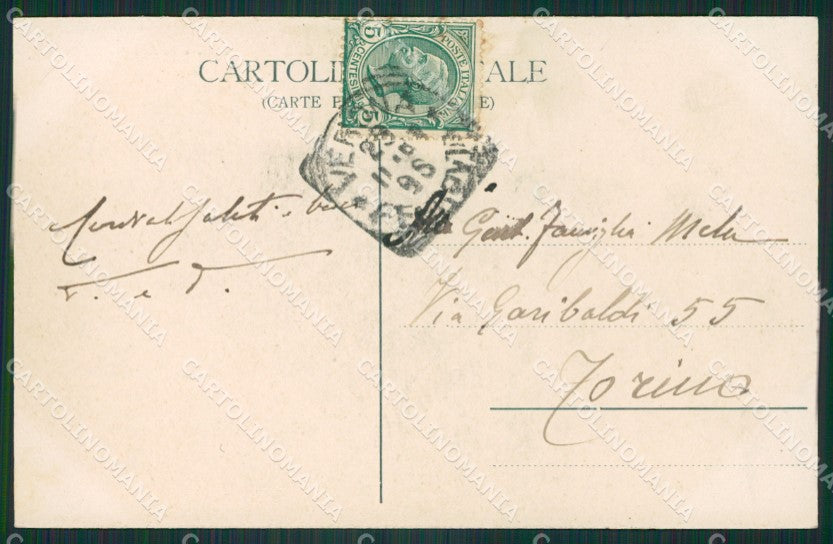 CARTOLI ALE
(CARTE P E)
POSTE ITALIANE
CENTESIMI
5 5
Cordiali saluti e
F. e T.
Alla Gent. Famiglia Mela
Via Garibaldi 55
Torino
CARTOLINOMANIA